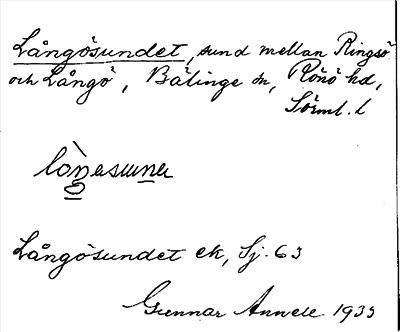 Långösundet, sund mellan Ringsö
och Långö, Bälinge sn, Rönö hd,
Sörml. l
Långösundet ek, Sj. 63
Gunnar Annell 1935